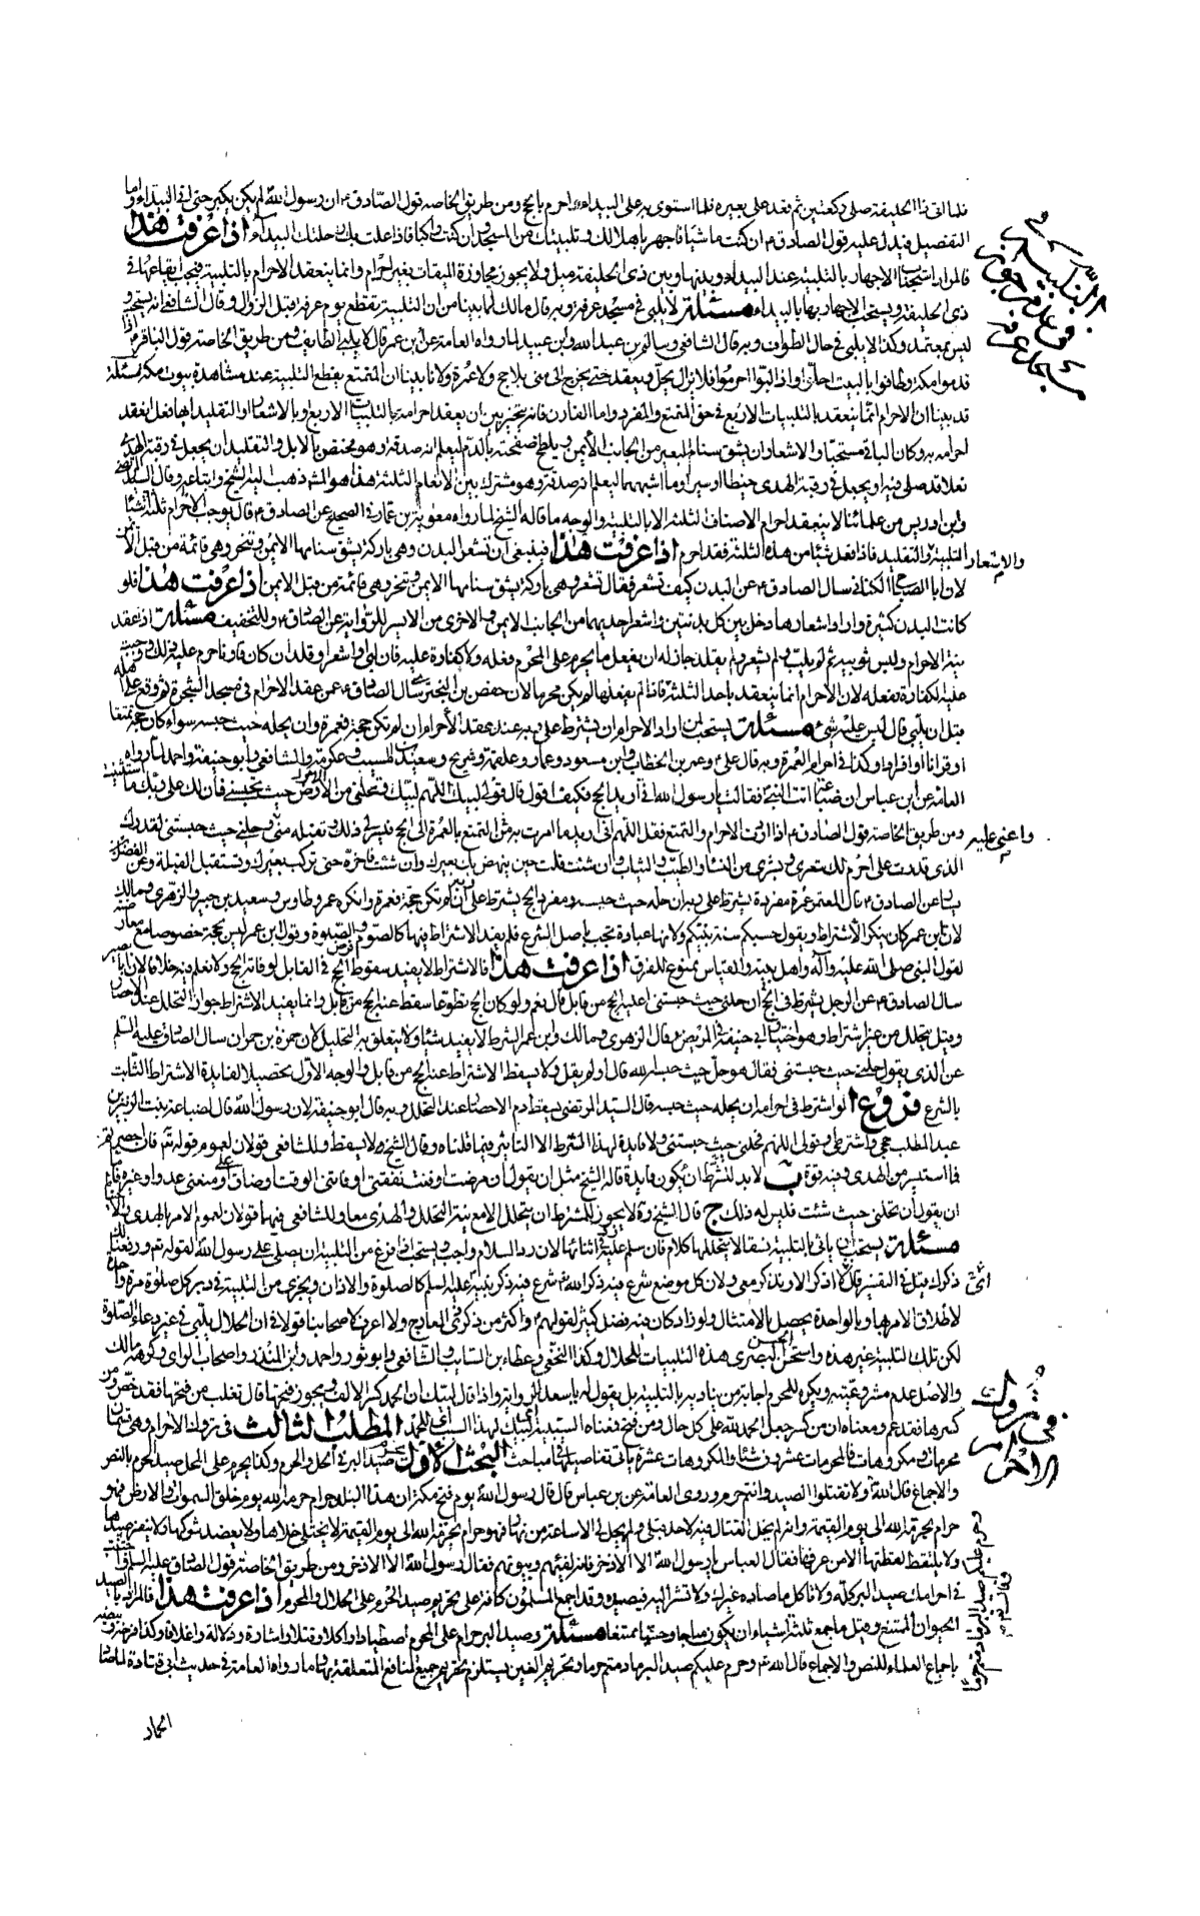 فلما اتى ذا الحليفة صلى ركعتين ثم قعد على بعيره فلما استوى به على البيداء احرم بالحج ومن طريق الخاصة قول الصادق ع ان رسول الله لم يكن يكبر حتى اتى البيداء واما
التفصيل فيدل عليه قول الصادق ع ان كنت ماشيا فاجهر باهلالك وتلبيتك من المسجد وان كنت راكبا فاذا علت بك راحلتك البيداء اذا عرفت هذا
فالمراد استحباب الاجهار بالتلبية عند البيداء وبينها وبين ذى الحليفة ميل ولا يجوز مجاوزة الميقات بغير احرام وانما ينعقد الاحرام بالتلبية فيجب ايقاعها فى
ذى الحليفة ويستحب الاجهار بها بالبيداء مسئلة لا يلبى فى مسجد عرفة وبه قال مالك لما بينا من ان التلبية تقطع يوم عرفة قبل الزوال وقال الشافعى انه يستحب و
ليس بمعتمد وكذا لا يلبى فى حال الطواف وبه قال الشافعى وسالم بن عبد الله وابن عيينة لما رواه العامة عن ابن عمر قال لا يلبى الطايف ومن طريق الخاصة قول الباقر ع اذا
قدموا مكة وطافوا بالبيت احلوا واذا لبوا احرموا فلا يزال يحل ويعقد حتى يخرج الى منى بلا حج ولا عمرة ولانا بينا ان المتمتع يقطع التلبية عند مشاهدة بيوت مكة مسئلة
قد بينا ان الاحرام انما ينعقد بالتلبيات الاربع فى حق المتمتع والمفرد واما القارن فانه يتخير بين ان يعقد احرامه بالتلبيات الاربع او بالاشعار او التقليد ايها فعل انعقد
احرامه به وكان الباقى مستحبا والاشعار ان يشق سنام البعير من الجانب الأيمن ويلطخ صفحته بالدم ليعلم انه صدقة وهو مختص بالابل والتقليد ان يجعل فى رقبة الهدى
نعلا قد صلى فيه او يجعل فى رقبة الهدى خيطا او سيرا وما اشبههما ليعلم انه صدقة وهو مشترك بين الانعام الثلثة هذا هو المشهور ذهب اليه الشيخ واتباعه وقال السيد المرتضى
وابن ادريس من علمائنا لا ينعقد احرام الاصناف الثلثة الا بالتلبية والوجه ما قاله الشيخ لما رواه معوية بن عمار فى الصحيح عن الصادق ع قال يوجب الاحرام ثلثة اشياء
التلبية والتقليد فاذا فعل شيئا من هذه الثلثة فقد احرم اذا عرفت هذا فينبغى ان تشعر البدن وهى باركة يشق سنامها الايمن وتنحر وهى قائمة من قبل الأيمن
والاشعار
لان ابا الصباح الكنانى سال الصادق ع عن البدن كيف تشعر فقال تشعر وهى باركة يشق سنامها الايمن وتنحر وهى قائمة من قبل الايمن اذا عرفت هذا فلو
كانت البدن كثيرة واراد اشعارها دخل بين كل بدنتين واشعر احديهما من الجانب الايمن والاخرى من الايسر للرواية عن الصادق ع وللتخفيف مسئلة اذا عقد
نية الاحرام ولبس ثوبيه ثم لم يلب ولم يشعر ولم يقلد جاز له ان يفعل ما يحرم على المحرم فعله ولا كفارة عليه فان لبى او اشعر او قلد ان كان قارنا حرم عليه ذلك ووجبت
عليه الكفارة بفعله لان الاحرام انما ينعقد باحد الثلثة فاذا لم يفعلها لم يكن محرما لان حفص بن البخترى سال الصادق ع عمن عقد الاحرام فى مسجد الشجرة ثم وقع على اهله
قبل ان يلبى قال ليس عليه شىء مسئلة يستحب لمن اراد الاحرام ان يشترط على ربه عند عقد الأحرام ان لم تكن حجة فعمرة وان يحله حيث حبسه سواء كان حجه تمتعا
او قرانا او افرادا وكذا فى احرام العمرة وبه قال على ع وعمر بن الخطاب وابن مسعود وعمار وعلقمة وشريح وسعيد بن المسيب وعكرمة والشافعى وابو حنيفة واحمد لما رواه
العامة عن ابن عباس ان ضباعة اتت النبى ع فقالت يا رسول الله انى اريد الحج فكيف اقول قال قولى لبيك اللهم لبيك ومحلى من الأرض حيث تحبسنى فان لك على ربك ما استثنيت
ومن طريق الخاصة قول الصادق ع اذا اردت الاحرام والتمتع فقل اللهم انى اريد ما امرت به من التمتع بالعمرة الى الحج فيسر لى ذلك وتقبله منى واعنى عليه وحلنى حيث حبستنى لقدرك
الذى قدرت على احرم لك شعرى وبشرى من النساء والطيب والثياب وان شئت قلت حين ينهض بك بعيرك وان شئت فاخره حتى تركب بعيرك وتستقبل القبلة وعن الفضيل بن
يسار عن الصادق ع قال المعتمر عمرة مفردة يشترط على ربه ان حله حيث حبسه ومفرد الحج يشترط على ربه ان لم تكن حجة فعمرة وانكره عمر وطاوس وسعيد بن جبير والزهرى ومالك
لان ابن عمر كان ينكر الأشتراط ويقول حسبكم سنة نبيكم ولانها عبادة تجب باصل الشرع فلم يفد الاشتراط فيها كالصوم والصلوة وقول ابن عمر ليس بحجة خصوصا مع معارضته
لقول النبى صلى الله عليه وآله واهل بيته والقياس ممنوع للفرق اذا عرفت هذا فالاشتراط لا يفيد سقوط فرض الحج فى القابل لو فاته الحج ولا نعلم فيه خلافا لان ابا بصير
سال الصادق ع عن الرجل يشترط فى الحج ان حلنى حيث حبستنى اعليه الحج من قابل قال نعم ولو كان الحج تطوعا سقط عنه الحج من قابل وانما يفيد الاشتراط جواز التحلل عند الاحصار
وقيل يتحلل من غير اشتراط وهو اختيار ابى حنيفة فى المريض وقال الزهرى ومالك وابن عمر الشرط لا يفيد شيئا ولا يتعلق به التحليل لان حمزة بن حمران سال الصادق عليه السلم
عن الذى يقول حلنى حيث حبستنى فقال هو حل حيث حبسه الله قال او لم يقل ولا يسقط الاشتراط عنه الحج من قابل والوجه الأول تحصيلا لفايدة الاشتراط الثابت
بالشرع فروع ا لو اشترط فى احرامه ان يحله حيث حبسه قال السيد المرتضى يسقط دم الاحصار عند التحلل وبه قال ابو حنيفة لان رسول الله قال لضباعة بنت الزبير بن
عبد المطلب حجى واشترطى وقولى اللهم محلى حيث حبستنى ولا فايدة لهذا الشرط الا التاثير فيما قلناه وقال الشيخ ره لا يسقط وللشافعى قولان لعموم قوله تع فان احصرتم
فما استيسر من الهدى وفيه قوة ب لا بد للشرط ان يكون فايدة قاله الشيخ مثل ان يقول ان مرضت او فنت نفقتى او فاتنى الوقت او ضاق على او منعنى عدو او غيره فاما
ان يقول ان تحلنى حيث شئت فليس له ذلك ج قال الشيخ ره لا يجوز للمشترط ان يتحلل الا مع نية التحلل والهدى معا وللشافعى فيهما قولان لعموم الامر بالهدى
مسئلة يستحب ان ياتى بالتلبية نسقا لا يتخللها كلام فان سلم عليه فى اثنائها رد لان رد السلام واجب ويستحب اذا فرغ من التلبية ان يصلى على رسول الله لقوله تع ورفعنا لك
ذكرك قيل فى التفسير لا اذكر الا وتذكر معى ولان كل موضع شرع فيه ذكر الله شرع فيه ذكر نبيه عليه السلم كالصلوة والاذان ويجزى من التلبية فى دبر كل صلوة مرة واحدة
لأطلاق الامر بها وبالواحدة يحصل الامتثال ولو زاد كان فيه فضل كثير لقولهم ع واكثر من ذكر ذى المعارج ولا اعرف لاصحابنا قولا فى ان الحلال يلبى فى غير دعاء الصلوة
لكن تلك التلبية غير هذه واستحسن الحسن البصرى هذه التلبيات للحلال وكذا النخعى وعطاء بن السايب والشافعى وابو ثور واحمد وابن المنذر واصحاب الراى وكرهه مالك
والاصل عدم مشروعيته ويكره للمحرم اجابة من يناديه بالتلبية بل يقول له يا سعد للرواية واذا قال لبيك ان الحمد كسر الالف ويجوز فتحها قال ثعلب من فتحها فقد خص ومن
كسرها فقد عم ومعناه ان من كسر جعل الحمد لله على كل حال ومن فتح فمعناه السببية اى لبيك لهذا السبب اى للحمد المطلب الثالث فى تروك الاحرام وهى قسمان
محرمات ومكروهات فالمحرمات عشرون شيئا والمكروهات عشرة ياتى تفاصيلها فى مباحث البحث الاول صيد البر فى الحل والحرم وكذا يحرم على المحل صيد الحرم بالنص
والاجماع قال الله تع لا تقتلوا الصيد وانتم حرم وروى العامة عن ابن عباس قال قال رسول الله يوم فتح مكة ان هذا البلد حرام حرمه الله يوم خلق السموات والارض فهو
حرام بحرمة الله الى يوم القيمة وانه لم يحل القتال فيه لاحد قبلى ولم يحل لى الا ساعة من نهار فهو حرام بحرمة الله الى يوم القيمة لا يختلى خلاها ولا يعضد شوكها ولا ينفر صيدها
ولا يلتقط لقطتها الا من عرفها فقال العباس يا رسول الله الا الأذخر فانه لقينهم وبيوتهم فقال رسول الله الا الاذخر ومن طريق الخاصة قول الصادق عليه السلم
فى احرامك صيد البر كله ولا تاكل مما صاده غيرك ولا تشر اليه فيصيده وقد اجمع المسلمون كافة على تحريم صيد الحرم على الحلال والمحرم اذا عرفت هذا فالمراد بالصيد
الحيوان الممتنع وقيل ما جمع ثلثة اشياء ان يكون مباحا وحشيا ممتنعا مسئلة وصيد البر حرام على المحرم اصطيادا واكلا وقتلا واشارة ودلالة واغلاقا وكذا فرخه وبيضه
باجماع العلماء للنص والاجماع قال الله تع وحرم عليكم صيد البر ما دمتم حرما وتحريم العين يستلزم تحريم جميع المنافع المتعلقة بها وما رواه العامة فى حديث ابى قتادة لما صاد
الحمار